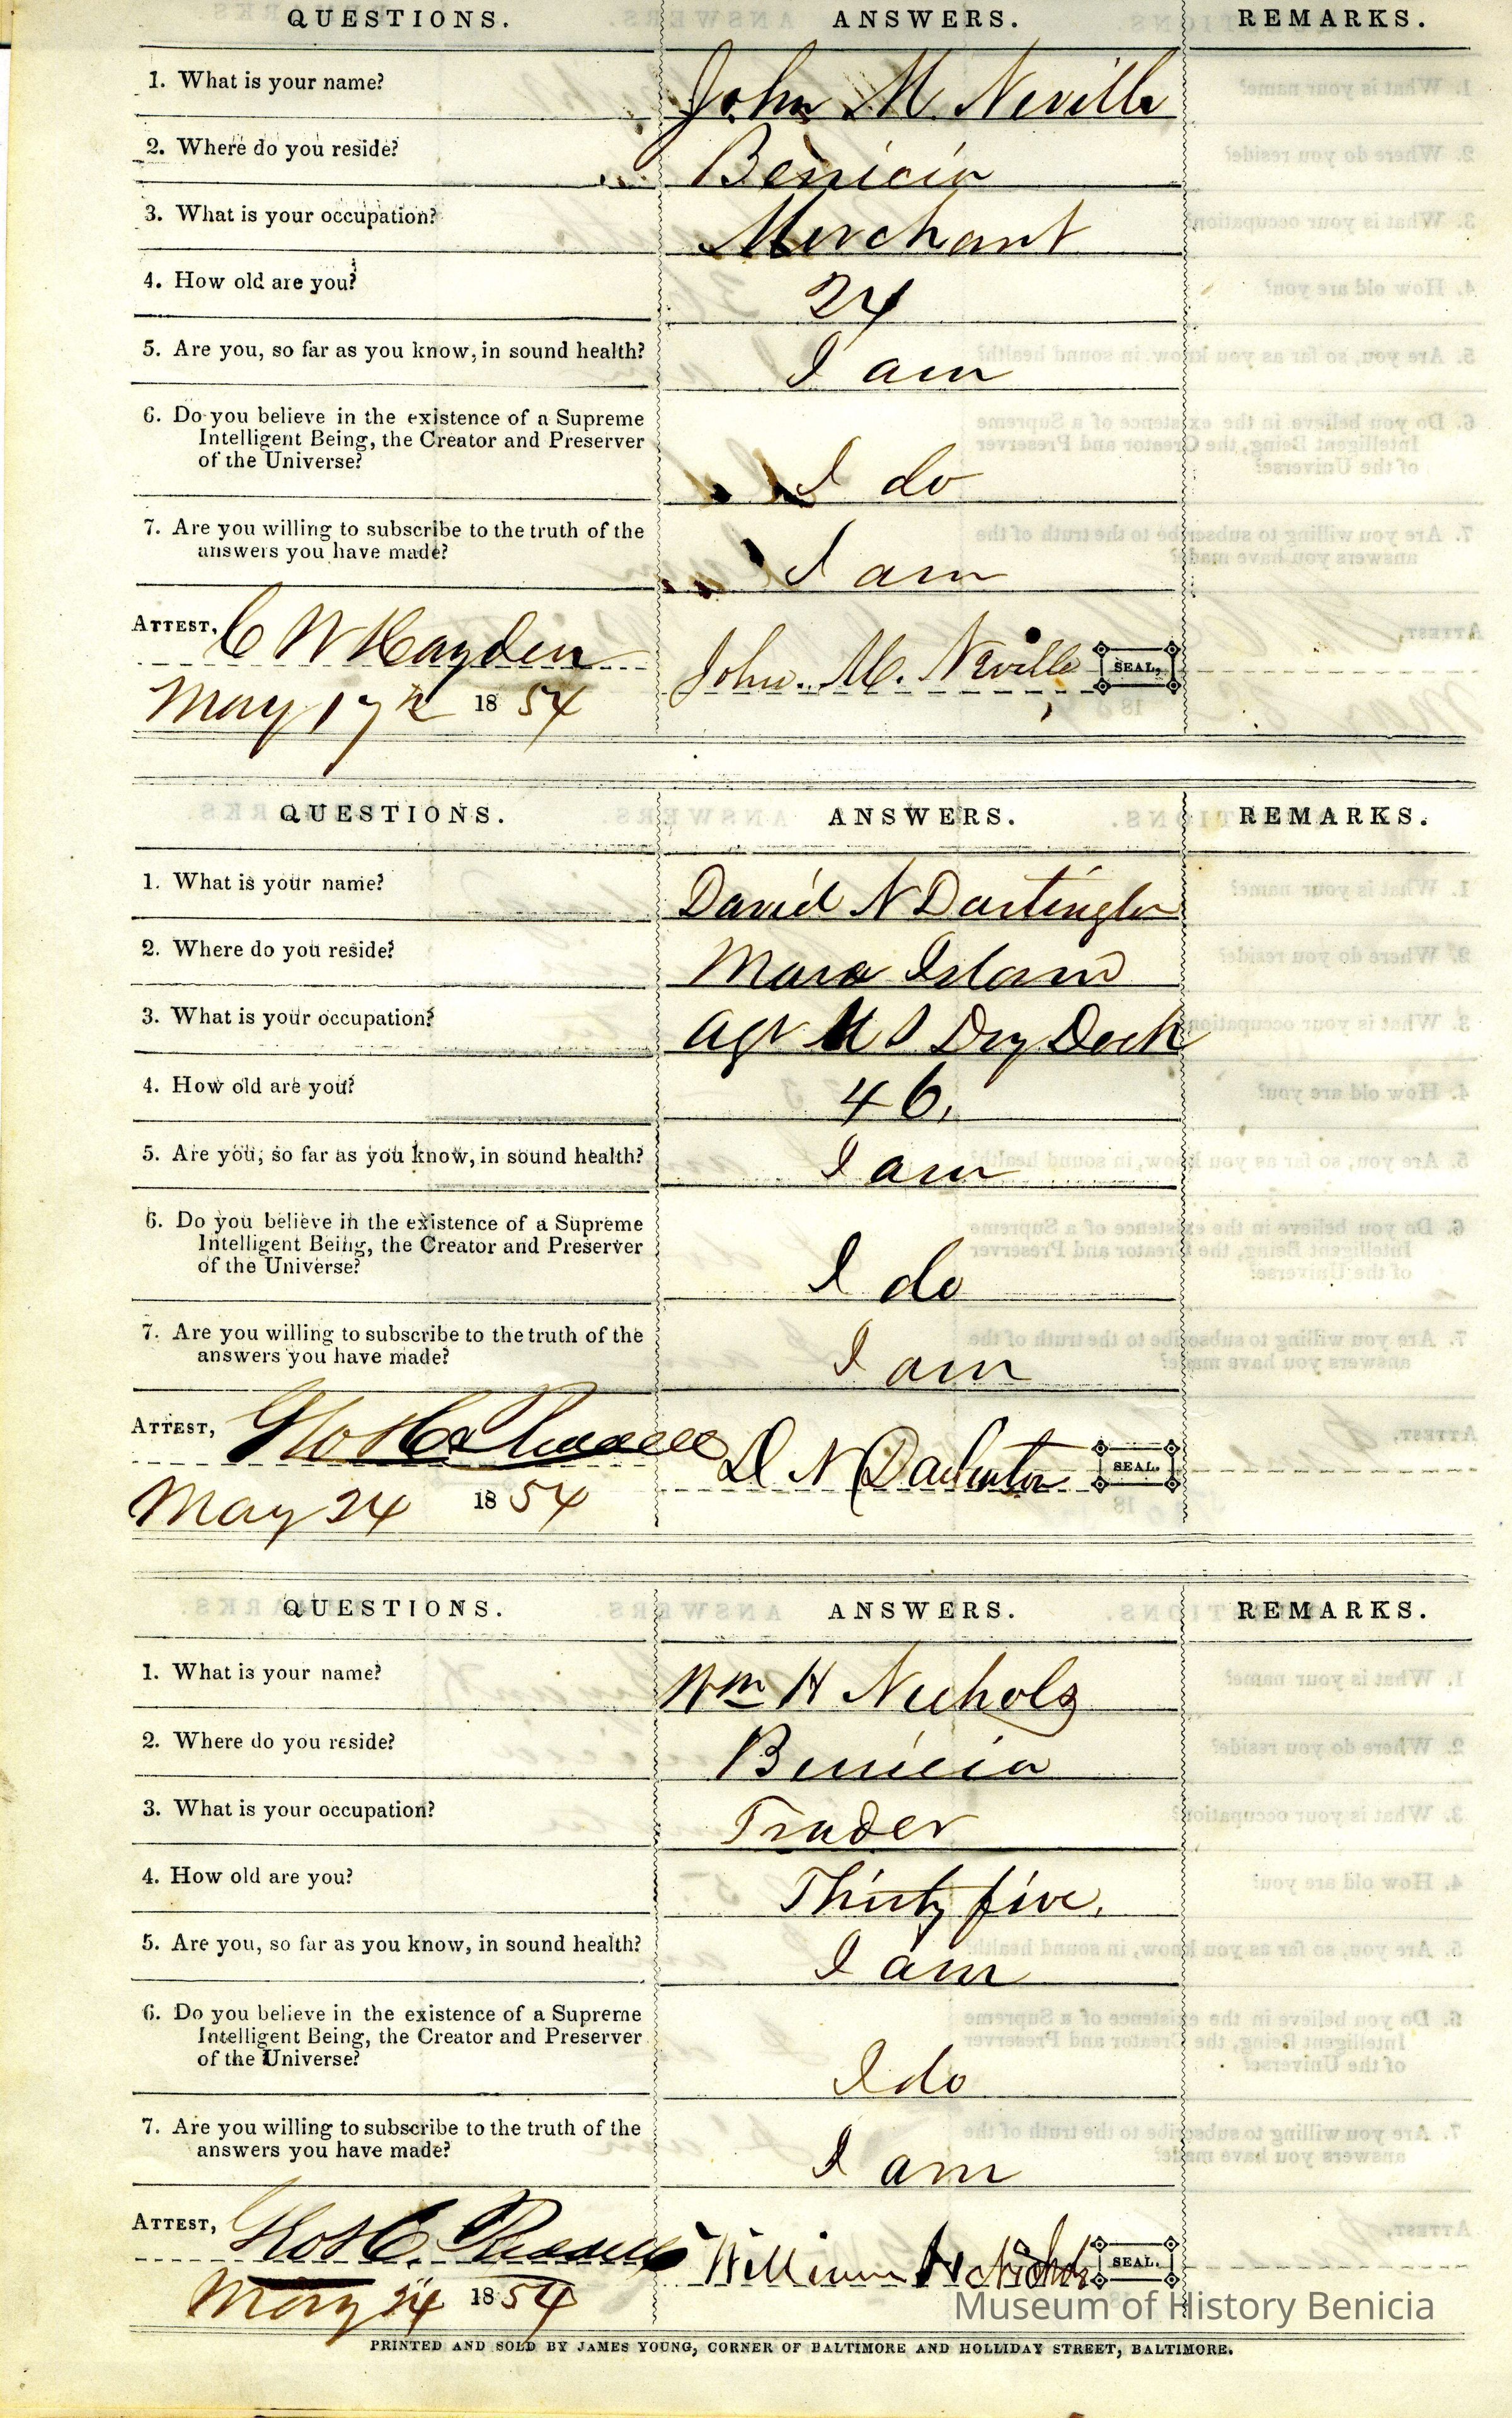 QUESTIONS. ANSWERS. REMARKS.
1. What is your name? John M. Neville
2. Where do you reside? Benicia
3. What is your occupation? Merchant
4. How old are you? 24
5. Are you, so far as you know, in sound health? I am
6. Do you believe in the existence of a Supreme
Intelligent Being, the Creator and Preserver
of the Universe? I do
7. Are you willing to subscribe to the truth of the
answers you have made? I am
ATTEST, C W Hayden John. M. Neville SEAL.
May 17th 1854
QUESTIONS. ANSWERS. REMARKS.
1. What is your name? David N
2. Where do you reside? Mare Island
3. What is your occupation? Agt U S Dry Dock
4. How old are you? 46.
5. Are you, so far as you know, in sound health? I am
6. Do you believe in the existence of a Supreme
Intelligent Being, the Creator and Preserver
of the Universe? I do
7. Are you willing to subscribe to the truth of the
answers you have made? I am
ATTEST, D N SEAL.
May 24 1854
QUESTIONS. ANSWERS. REMARKS.
1. What is your name? Wm H Nichols
2. Where do you reside? Benicia
3. What is your occupation? Trader
4. How old are you? Thirty five.
5. Are you, so far as you know, in sound health? I am
6. Do you believe in the existence of a Supreme
Intelligent Being, the Creator and Preserver
of the Universe? I do
7. Are you willing to subscribe to the truth of the
answers you have made? I am
ATTEST, William H Nichols SEAL.
May 24 1854
Museum of History Benicia
PRINTED AND SOLD BY JAMES YOUNG, CORNER OF BALTIMORE AND HOLLIDAY STREET, BALTIMORE.